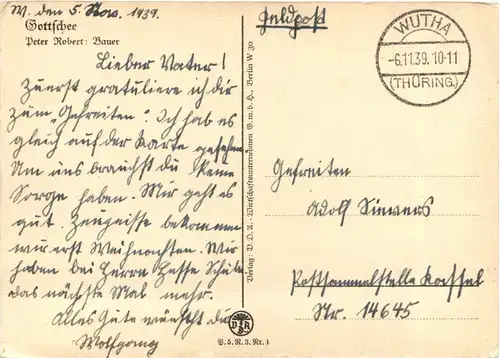 W. den 5. Nov. 1939.
Gottschee
Peter Robert: Bauer
Lieber Vater!
Zuerst gratuliere ich dir
zum „Gefreiten“. Ich hab es
gleich auf der Karte gesehen.
Um uns brauchst du keine
Sorge haben. Mir geht es
gut. Zeugnisse bekommen
wir erst Weihnachten. Wir
haben bei Herrn Hesse Schule
das nächste Mal mehr.
Alles Gute wünscht dir
Wolfgang
Verlag: V.D.A.-Wirtschaftsunternehmen G.m.b.H., Berlin W 30
VDA
V. 5. R. 3. Nr. 4
Feldpost
WUTHA
-6.11.39. 10-11
(THÜRING.)
Gefreiten
Adolf Siewers
Postsammelstelle Kassel
Nr. 14645